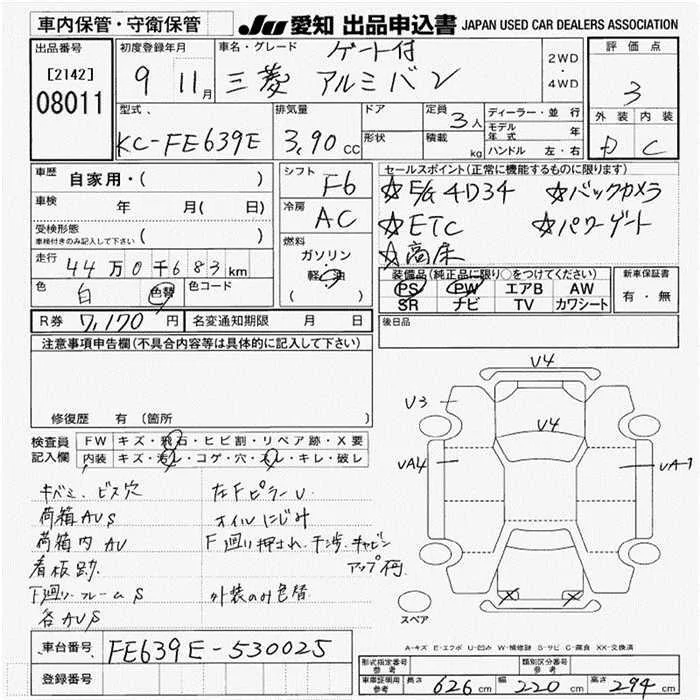 車内保管・守衛保管
JU 愛知 出品申込書 JAPAN USED CAR DEALERS ASSOCIATION
出品番号
[2142]
08011
初度登録年月
9 11月
車名・グレード
ゲート付
三菱 アルミバン
2WD
・
4WD
評価点
3
外装 内装
D C
型式、
KC-FE639E
排気量
3.90 CC
ドア
形状
定員
3人
積載
kg
ディーラー・並行
モデル年式 年
ハンドル 左・右
車歴
自家用・( )
車検
年 月( 日)
受検形態
車検付きのみ記入して下さい
( )
走行
44万0千683km
色
白
色替
色コード
シフト
F6
冷房
AC
燃料
ガソリン
(軽・油 )
セールスポイント(正常に機能するものに限ります)
☆E/G 4D34 ☆バックカメラ
☆ETC ☆パワーゲート
☆高床
装備品(純正品に限り○をつけてください)
PS PW エアB AW
SR ナビ TV カワシート
新車保証書
有・無
R券 7,170円
名変通知期限 月 日
後日品
注意事項申告欄(不具合内容等は具体的に記入して下さい)
修復歴 有 (箇所 )
検査員
記入欄
FW キズ・飛石・ヒビ割・リペア跡・X要
内装 キズ・汚レ・コゲ・穴・スレ・キレ・破レ
キバミ、ビス穴
荷箱AUS
荷箱内AU
看板跡
下廻り フレームS
各AUS
左Fピラー U
オイルにじみ
F廻り押され、干渉、キャビン
アップ不可
外装のみ色替
V4
V3
V4
VA4
VA-1
X X
スペア
A-キズ E-エクボ U-凹み W-補修跡 S-サビ C-腐食 XX-交換済
車台番号 FE639E-530025
登録番号
形式指定番号
参考
類別区分番号
参考
車庫証明用
参考
長さ 626 cm 幅 220 cm 高さ 294 cm